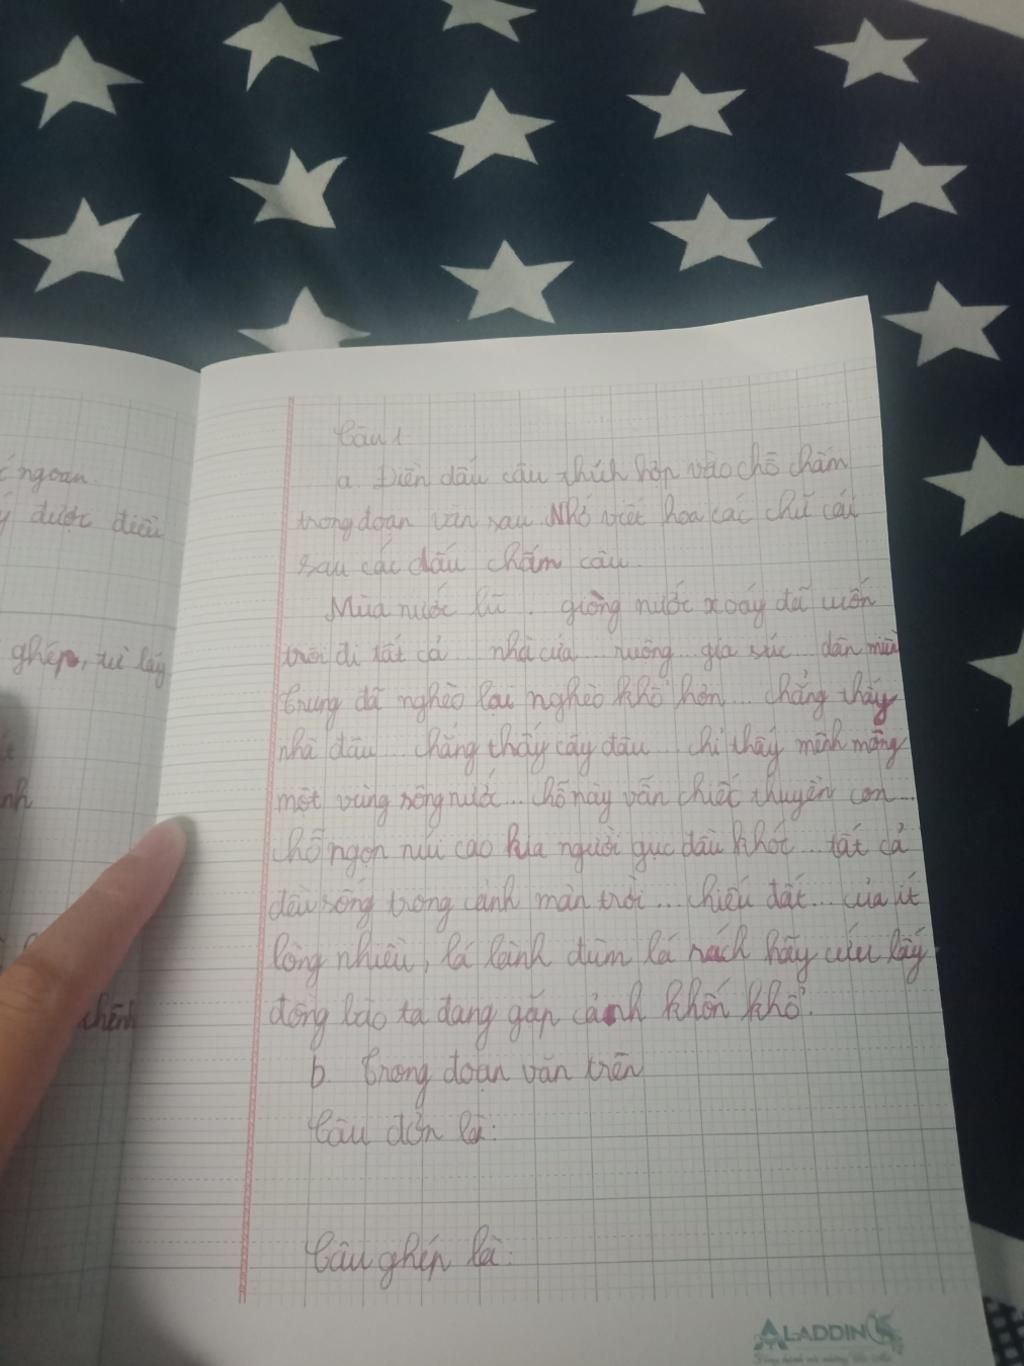 ngoan
được điều
ghép, từ láy
nh
chênh
Câu 1.
a. Điền dấu câu thích hợp vào chỗ chấm
trong đoạn văn sau. Nhớ viết hoa các chữ cái
sau các dấu chấm câu.
Mùa nước lũ . giòng nước xoáy đã cuốn
trôi đi tất cả nhà cửa ruộng gia súc dân miền
trung đã nghèo lại nghèo khổ hơn... chẳng thấy
nhà đâu... chẳng thấy cây đâu chỉ thấy mênh mông
một vùng sông nước... chỗ này vẫn chiếc thuyền con...
chỗ ngọn núi cao kia người gục đầu khóc... tất cả
đều sống trong cảnh màn trời... chiếu đất... của ít
lòng nhiều, lá lành đùm lá rách hãy cứu lấy
đồng bào ta đang gặp cảnh khốn khổ.
b. Trong đoạn văn trên
Câu đơn là:
Câu ghép là:
ALADDIN